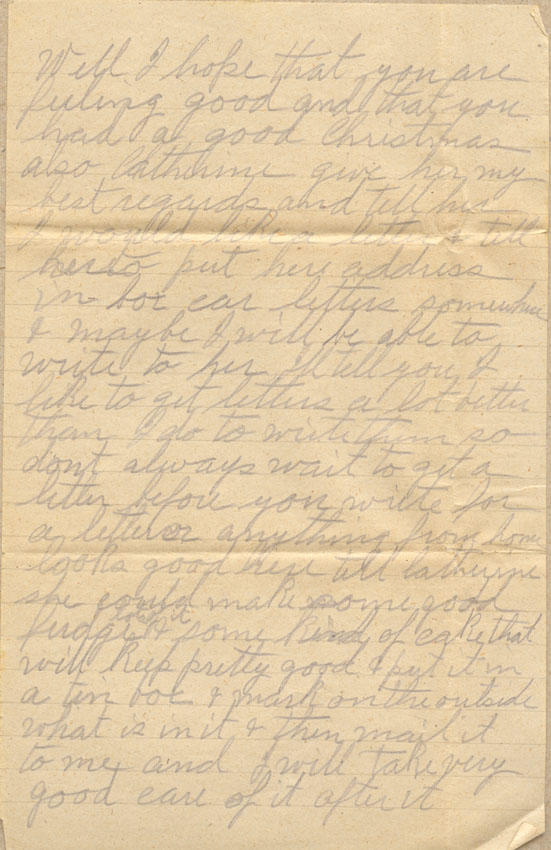 Well I hope that you are
feeling good and that you
had a good Christmas
also Catherine give her my
best regards and tell her
I would like a letter & tell
her to put here address
in box car letters somewhere
& maybe I will be able to
write to her I'll tell you I
like to get letters a lot better
than I do to write them so
dont always wait to get a
letter before you write for
a letter or anything from home
looks good here tell Catheryne
she could make some good
fudge & some kind of cake that
will keep pretty good & put it in
a tin box & mark on the outside
what is in it & then mail it
to me and I will take very
good care of it after it